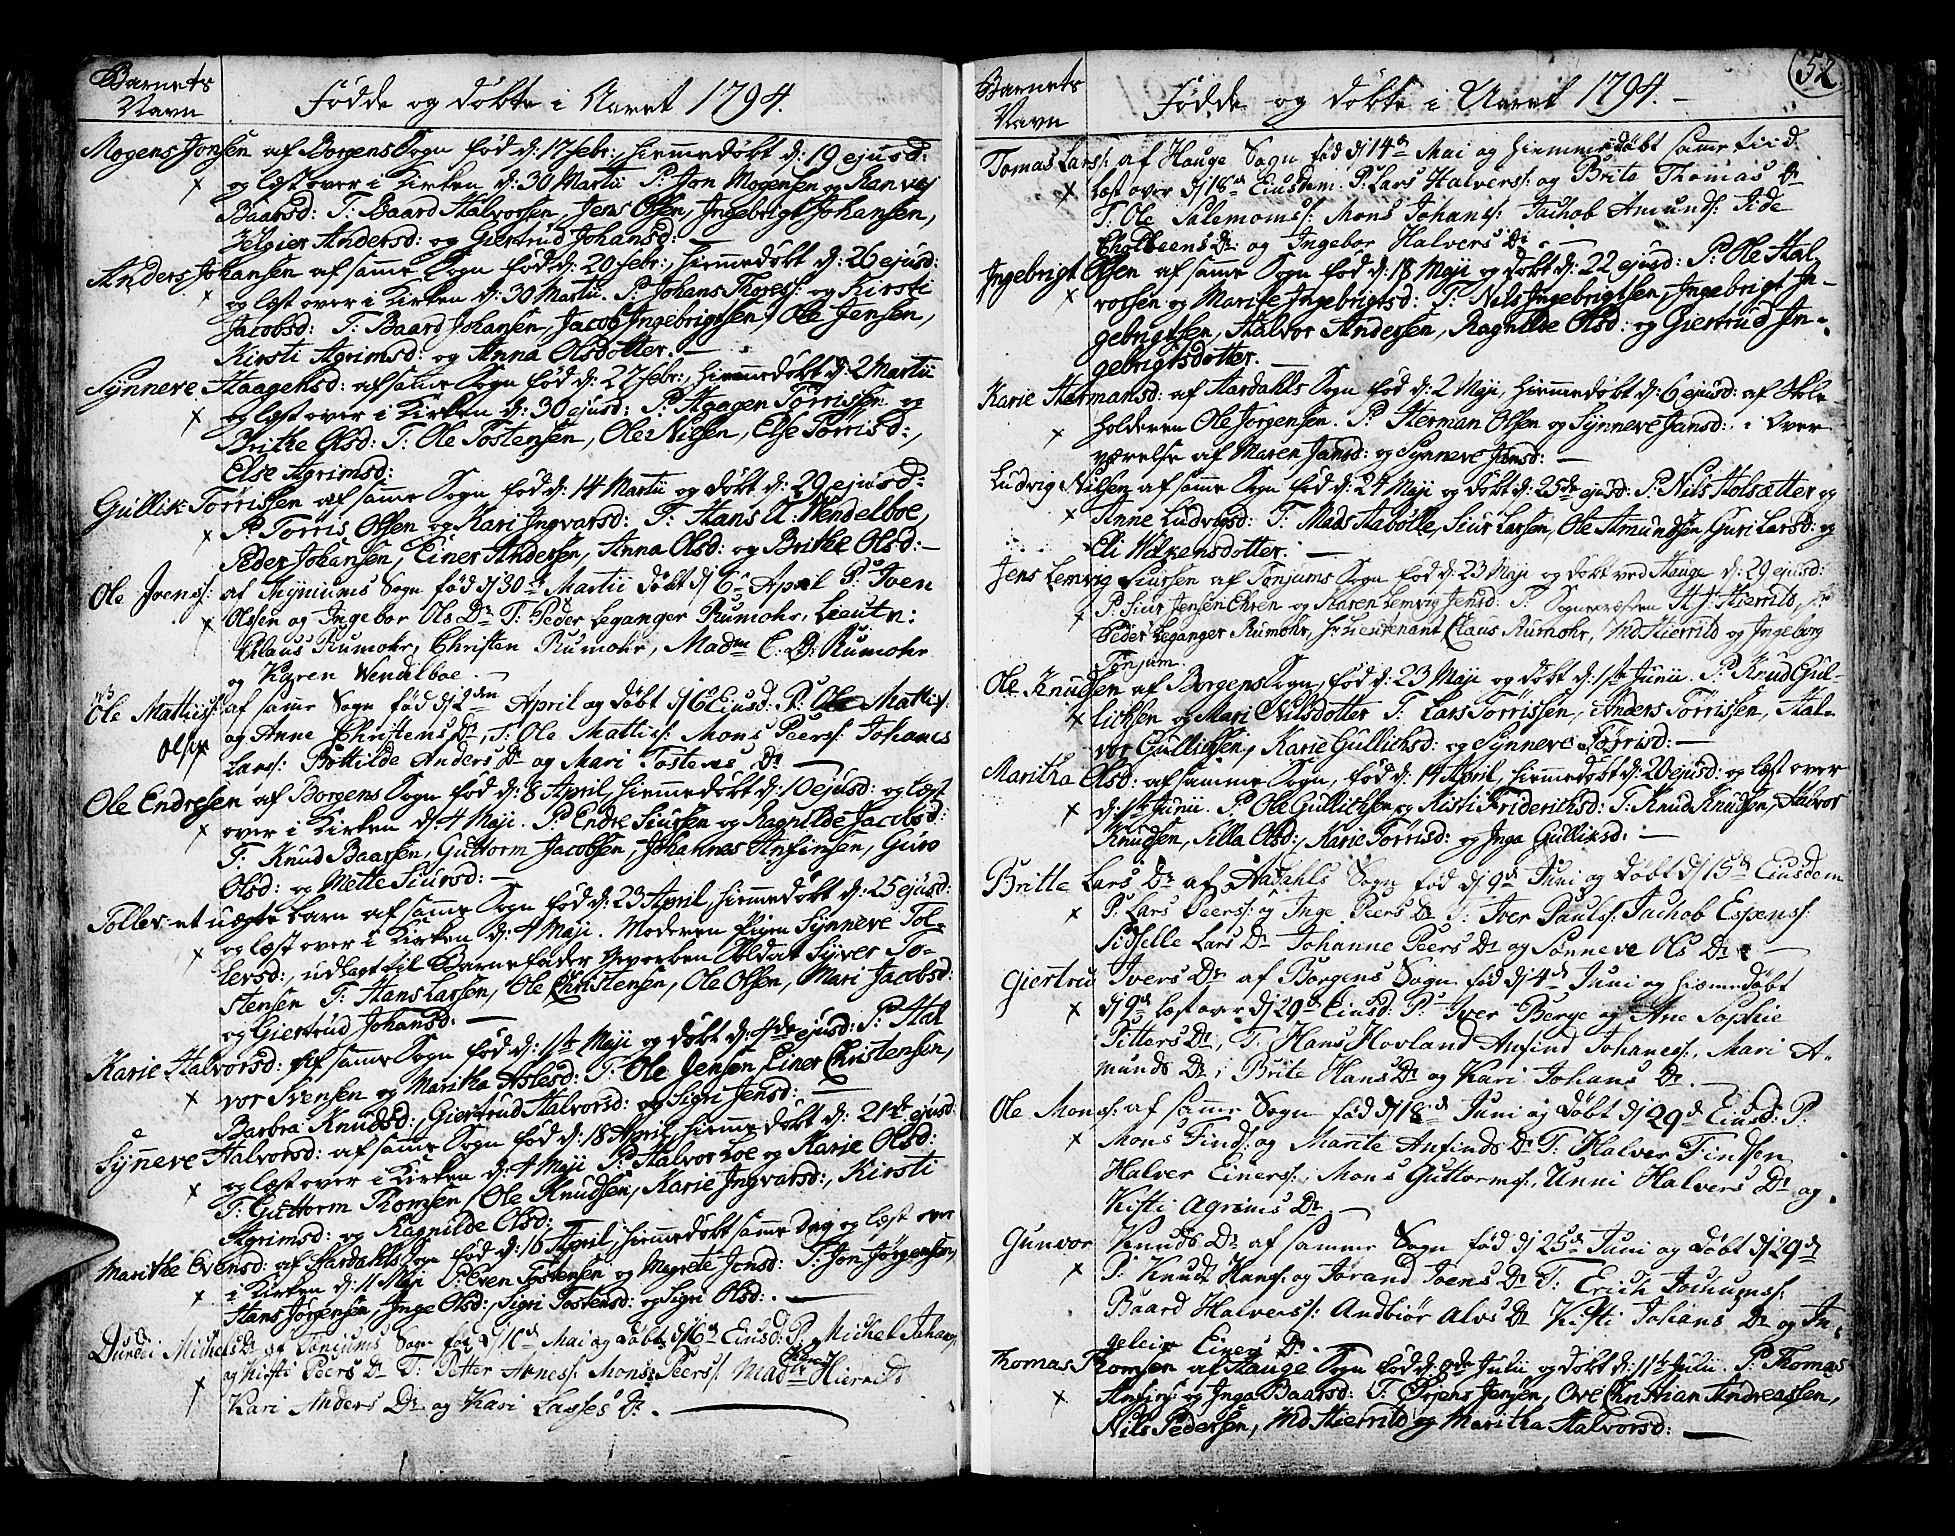 Barnets
Navn
Fødde og døbte i Aaret 1794.
Mogens Jonsen af Borgens Sogn fød d: 17 febr:, hiemmedøbt d: 19 ejusd:
og læst over i Kirken d: 30 Martii P: Jon Mogensen og Ranvej
Baarsd: T: Baard Halvorsen, Jens Olsen, Ingebrigt Johansen,
Andersd: og Giertrud Johansd:
Anders Johansen af samme Sogn fød d: 20 febr:, hiemmedøbt d: 26 ejusd:
og læst over i Kirken d: 30 Martii. P: Johans Thoress: og Kirsti
Jacobsd: T: Baard Johansen, Jacob Ingebrigtsen, Ole Jensen,
Kirsti Agrimsd: og Anna Olsdotter.
Synneve Haagensd: af samme Sogn fød d: 27 febr:, hiemmedøbt d: 2 Martii
og læst over i Kirken d: 30 ejusd: P: Haagen Torrisen og
Brithe Olsd: T: Ole Tostensen, Ole Nilsen, Else Torrisd:,
Else Agrimsd:
Gullik Torrisen af samme Sogn fød d: 14 Martii og døbt d: 29 ejusd:
P: Torris Olsen og Kari Ingvarsd: T: Hans A: Wendelboe,
Peder Johansen, Einer Andersen, Anna Olsd: og Brithe Olsd:
Ole Joens: af Sogn fød d/ 30 Martii døbt d/ 6 April P: Joen
Olsen og Ingebor Ols Dr T: Peder Leganger Rumohr, Lieutn:
Claus Rumohr, Christen Rumohr, Madm C. D. Rumohr
og Karen Wendelboe.
Ole Mattis: af samme Sogn fød d/ 2den April og døbt d/ 6 Eiusd: P: Ole Mattis:
Olsøn og Anne Christens Dr, T: Ole Mattis: Mons Peers: Johanes
Lars: Bottilde Anders Dr og Mari Tostens Dr
Ole Endresen af Borgens Sogn fød d: 8 April, hiemmedøbt d: 10 ejusd: og læst
over i Kirken d: 4 Maji. P: Endre Siursen og Ragnilde Jacobsd:
T: Knud Baarsen, Guttorm Jacobsen, Johannes Anfinsen, Guro
Olsd: og Mette Siursd:
Tollev et uægte barn af samme Sogn fød d: 23 April, hiemmedøbt d: 25 ejusd:
og læst over i Kirken d: 4 Maji. Moderen Pigen Synneve Tol-
levsd:, udlagt til Barnefader Soldat Syver To-
stensen T: Hans Larsen, Ole Christensen, Ole Olsen, Mari Jacobsd:
og Giertrud Johansd:
Karie Halvorsd: af samme Sogn fød d: 1ste Maji og døbt d: 4de ejusd: P: Hal
vor Svensen og Maritha Aslesd: T: Ole Jensen Einer Christensen,
Barbra Knudsd:, Giertrud Halvorsd: og Sigri Jensd:
Synneve Halvorsd: af samme Sogn fød d: 18 April, hiemmedøbt d: 21de ejusd:
og læst over i Kirken d: 4 Maji P: Halvor Loe og Karie Olsd:
T: Guttorm Thomsen, Ole Knudsen, Karie Ingvarsd:, Kirsti
Agrimsd: og Ragnilde Olsd:
Marithe Evensd: af Aardahls Sogn fød d: 16 April, hiemmedøbt samme dag og læst over
i Kirken d: 11 Maji P: Even Tostensen og Magrete Jonsd: T: Jon Jørgensen,
Hans Jørgensen, Inge Olsd:, Sigri Tostensd: og Sigri Olsd:
Michels Dr af Tonjums Sogn fød d/ Mai og døbt d/ 16 Eiusd: P: Michel Johans:
og Kirsti Peers Dr T: Petter Arness: Mons Peers: Madm Hierrild
Kari Anders Dr og Kari Lasses Dr.
52
Barnets
Navn
Fødde og døbte i Aaret 1794.
Tomas Lars: af Hauge Sogn fød d/ 14 Mai og hiemmedøbt samme tiid
læst over d/ 18 Eiusdem. P: Lars Halvers: og Brite Thomas Dr
T: Ole Salemoms: Mons Johans: Jachob Amunds: Side
Dr: og Ingebor Halvers Dr.
Ingebrigt Olsen af samme Sogn fød d: 18 Maji og døbt d: 22 ejusd: P: Ole Hal,
vorsen og Marite Ingebrigtsd: T: Nils Ingebrigtsen, Ingebrigt In-
gebrigtsen, Halvor Andersen, Ragnilde Olsd: og Giertrud In-
gebrigtsdotter.
Karie Hermansd: af Aardahls Sogn fød d: 2 Maji, hiemmedøbt d: 6 ejusd: af Skole
holderen Ole Jorgensen. P: Herman Olsen og Synneve Jansd: i Over
værelse af Maren Jansd: og Synneve Jansd:
Ludvig Nilsen af samme Sogn fød d: 24 Maji og døbt d: 25de ejusd: P: Nils Holsætter og
Anne Ludvigsd: T: Mads Siur Larsen, Ole Amundsen, Guri Larsd: og
Eli Wilkensdotter.
Jens Lemvig Siursen af Tonjums Sogn fød d: 23 Maji og døbt ved Hauge d: 29 ejusd:
P: Siur Jensen Ehren og Karen Lemvig Jensd: T: Sognepresten H. J. Hierrild, hr
Peder Leganger Rumohr, hr Lieutenant Claus Rumohr, Md Hierrild og Ingeborg
Tonjum.
Ole Knudsen af Borgens Sogn, fød d: 23 Maji og døbt d: 1ste Junii. P: Knud Gul-
lichsen og Mari Nilsdotter T: Lars Torrissen, Anders Torrissen, Hal-
vor Gullichsen, Karie Gullichsd: og Synneve Torrisd:
Maritha Olsd: af samme Sogn, fød d: 19 April, hiemmedøbt d: 20 ejusd: og læst over
d: 1ste Junii. P: Ole Gullichsen og Kisti Friderichsd: T: Knud Knudsen, Halvor
Knudsen, Silla Olsd:, Karie Torrisd: og Inga Gulliksd:
Britte Lars Dr af Aadahls Sogn fød d/ 9 Juni og døbt d/ 15 Eiusdem
P: Lars Peers: og Inge Peers Dr T: Iver Pauls: Jachob Espens:
Sidselle Lars Dr Johanne Peers Dr og Sonneve Ols Dr
Giertru Ivers Dr af Borgens Sogn fød d/ 4 Juni og hiemedøbt
d/ 9 læst over d/ 29 Eiusd: P: Iver Berge og Ane Sophie
Pitters Dr, T: Hans Hovland Anfind Johaness: Mari A-
munds Dr, Brite Hans Dr og Kari Johans Dr.
Ole Mons: af samme Sogn fød d/ 18 Juni og døbt d/ 29 Eiusd: P:
Mons Finds: og Marite Anfinds Dr T: Halver Findsen
Halver Einers:, Mons Guttorms:, Unni Halvers Dr og
Kisti Agrims Dr.
Gunvor Knuds Dr af samme Sogn fød d/ 25 Juni og døbt d/ 29
P: Knudt Hans: og Jorand Joens Dr T: Erich
Baard Halvers: Andbiør Alvs Dr Kisti Johans Dr og In-
geleir Einers Dr.
Thomas Thomsen af Hauge Sogn fød d: 9de Julii og døbt d: 11te Julii. P: Thomas
Anfins: og Inga Baarsd: T: Jensen, Ove Christian Andreassen,
Nils Pedersen, Md Hierrild og Maritha Halvorsd: